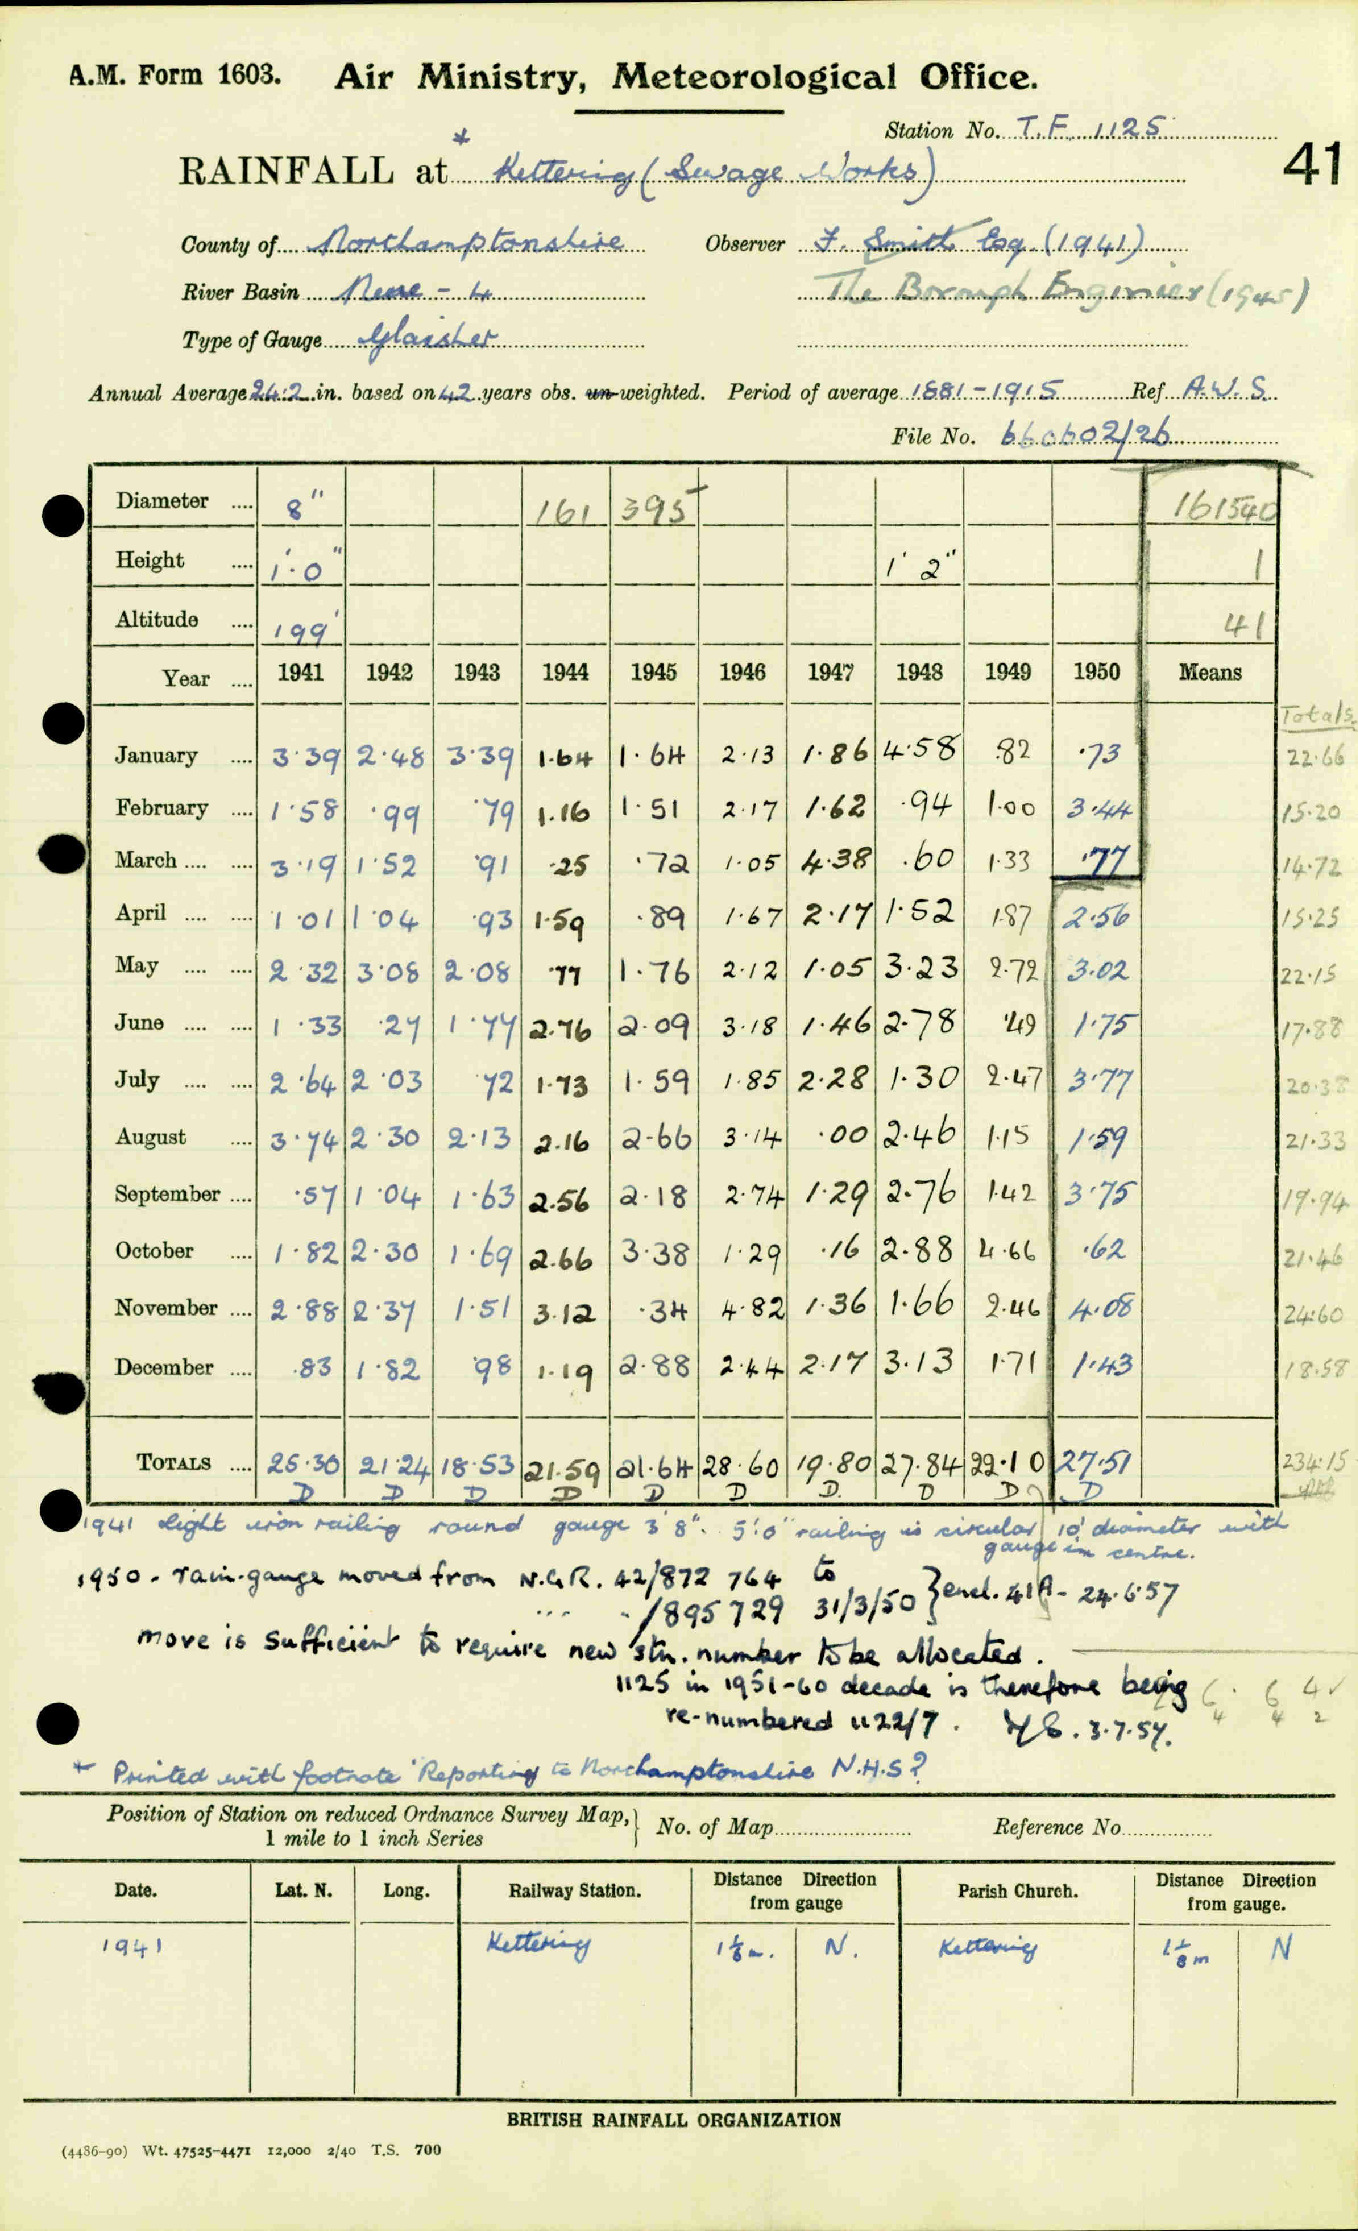 A.M. Form 1603. Air Ministry, Meteorological Office.
Station No. T.F. 1125
41
RAINFALL at * Kettering (Sewage Works)
County of Northamptonshire Observer F. Smith Esq. (1941)
River Basin Nene - 4 The Borough Engineer (1945)
Type of Gauge Glaisher
Annual Average 24.2 in. based on 42 years obs. un-weighted. Period of average 1881-1915 Ref. A.W.S.
File No. 660602/26
Diameter .... 8" 161 395 161540
Height .... 1'.0" 1' 2" 1
Altitude .... 199' 41
Year .... 1941 1942 1943 1944 1945 1946 1947 1948 1949 1950 Means
Totals
January .... 3.39 2.48 3.39 1.64 1.64 2.13 1.86 4.58 .82 .73 22.66
February .... 1.58 .99 .79 1.16 1.51 2.17 1.62 .94 1.00 3.44 15.20
March .... .... 3.19 1.52 .91 .25 .72 1.05 4.38 .60 1.33 .77 14.72
April .... .... 1.01 1.04 .93 1.59 .89 1.67 2.17 1.52 1.87 2.56 15.25
May .... .... 2.32 3.08 2.08 .77 1.76 2.12 1.05 3.23 2.72 3.02 22.15
June .... .... 1.33 .27 1.77 2.76 2.09 3.18 1.46 2.78 .49 1.75 17.88
July .... .... 2.64 2.03 .72 1.73 1.59 1.85 2.28 1.30 2.47 3.77 20.38
August .... 3.74 2.30 2.13 2.16 2.66 3.14 .00 2.46 1.15 1.59 21.33
September .... .57 1.04 1.63 2.56 2.18 2.74 1.29 2.76 1.42 3.75 19.94
October .... 1.82 2.30 1.69 2.66 3.38 1.29 .16 2.88 4.66 .62 21.46
November .... 2.88 2.37 1.51 3.12 .34 4.82 1.36 1.66 2.46 4.08 24.60
December .... .83 1.82 .98 1.19 2.88 2.44 2.17 3.13 1.71 1.43 18.58
TOTALS .... 25.30 21.24 18.53 21.59 21.64 28.60 19.80 27.84 22.10 27.51 234.15
D D D D D D D. D D D
1941 Light iron railing round gauge 3'8". 5'.0" railing is circular 10' diameter with
gauge in centre.
1950 - rain-gauge moved from N.G.R. 42/872 764 to
" " /895 729 31/3/50 } encl. 41A - 24.6.57
move is sufficient to require new stn. number to be allocated.
1125 in 1951-60 decade is therefore being
re-numbered 1122/7. 3.7.57.
6 6 4
4 4 2
* Printed with footnote 'Reporting to Northamptonshire N.H.S?
Position of Station on reduced Ordnance Survey Map, } No. of Map Reference No
1 mile to 1 inch Series
Date. Lat. N. Long. Railway Station. Distance Direction from gauge Parish Church. Distance Direction from gauge.
1941 Kettering 1⅛ m. N. Kettering 1⅛ m N
BRITISH RAINFALL ORGANIZATION
(4486-90) Wt. 47525-4471 12,000 2/40 T.S. 700